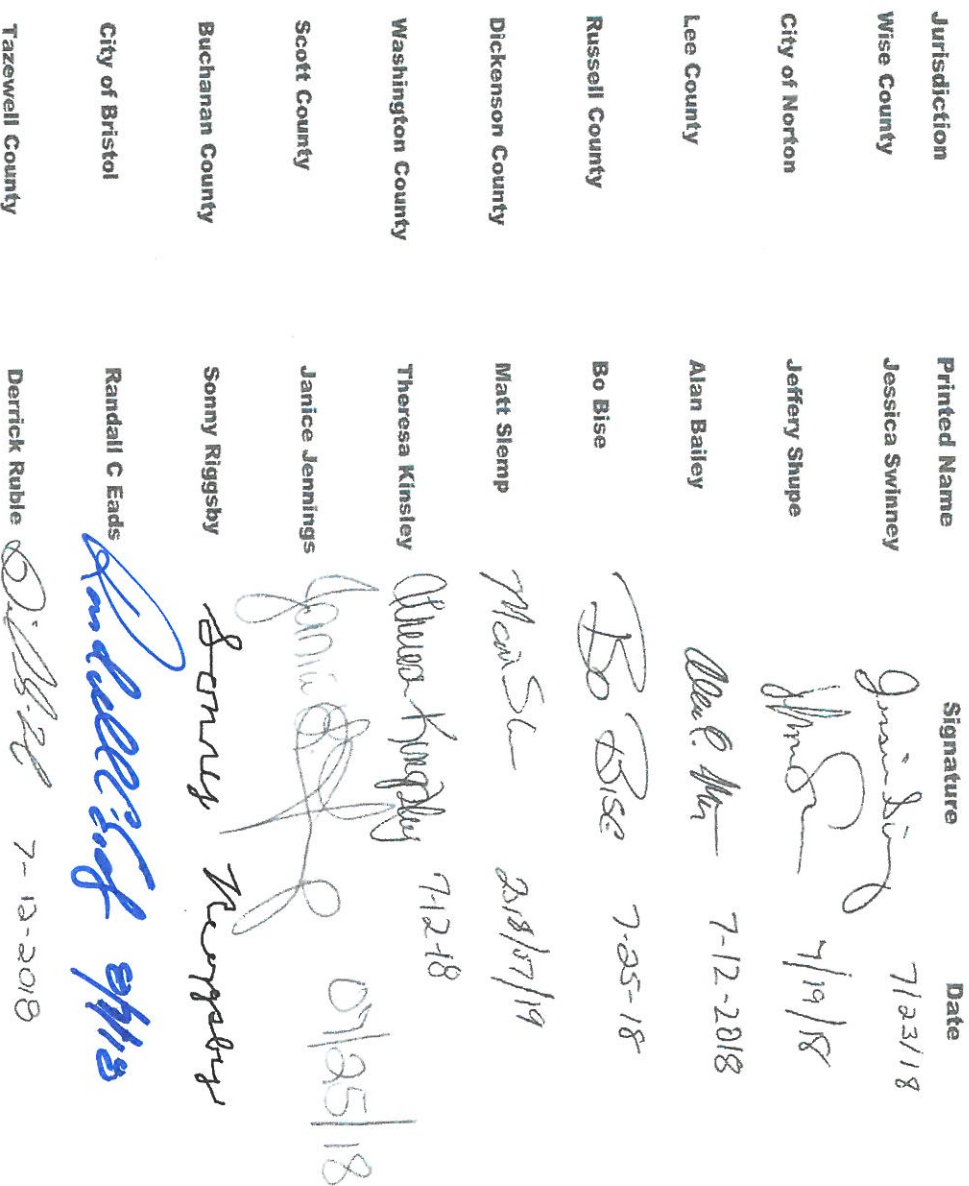 Jurisdiction Printed Name Signature Date
Wise County Jessica Swinney 7/23/18
City of Norton Jeffery Shupe 7/19/18
Lee County Alan Bailey 7-12-2018
Russell County Bo Bise Bo Bise 7-25-18
Dickenson County Matt Slemp 2018/07/19
Washington County Theresa Kinsley Theresa Kingsley 7-12-18
Scott County Janice Jennings Janice 07/25/18
Buchanan County Sonny Riggsby Sonny
City of Bristol Randall C Eads Randall C Eads
Tazewell County Derrick Ruble 7-12-2018